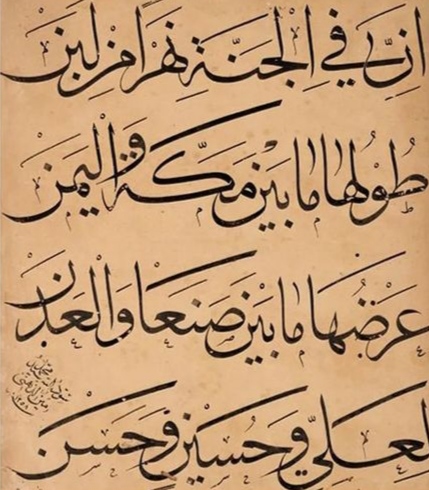 ان في الجنة نهرا من لبن
طولها ما بين مكة و اليمن
عرضها ما بين صنعا و العدن
لعلي و حسين و حسن